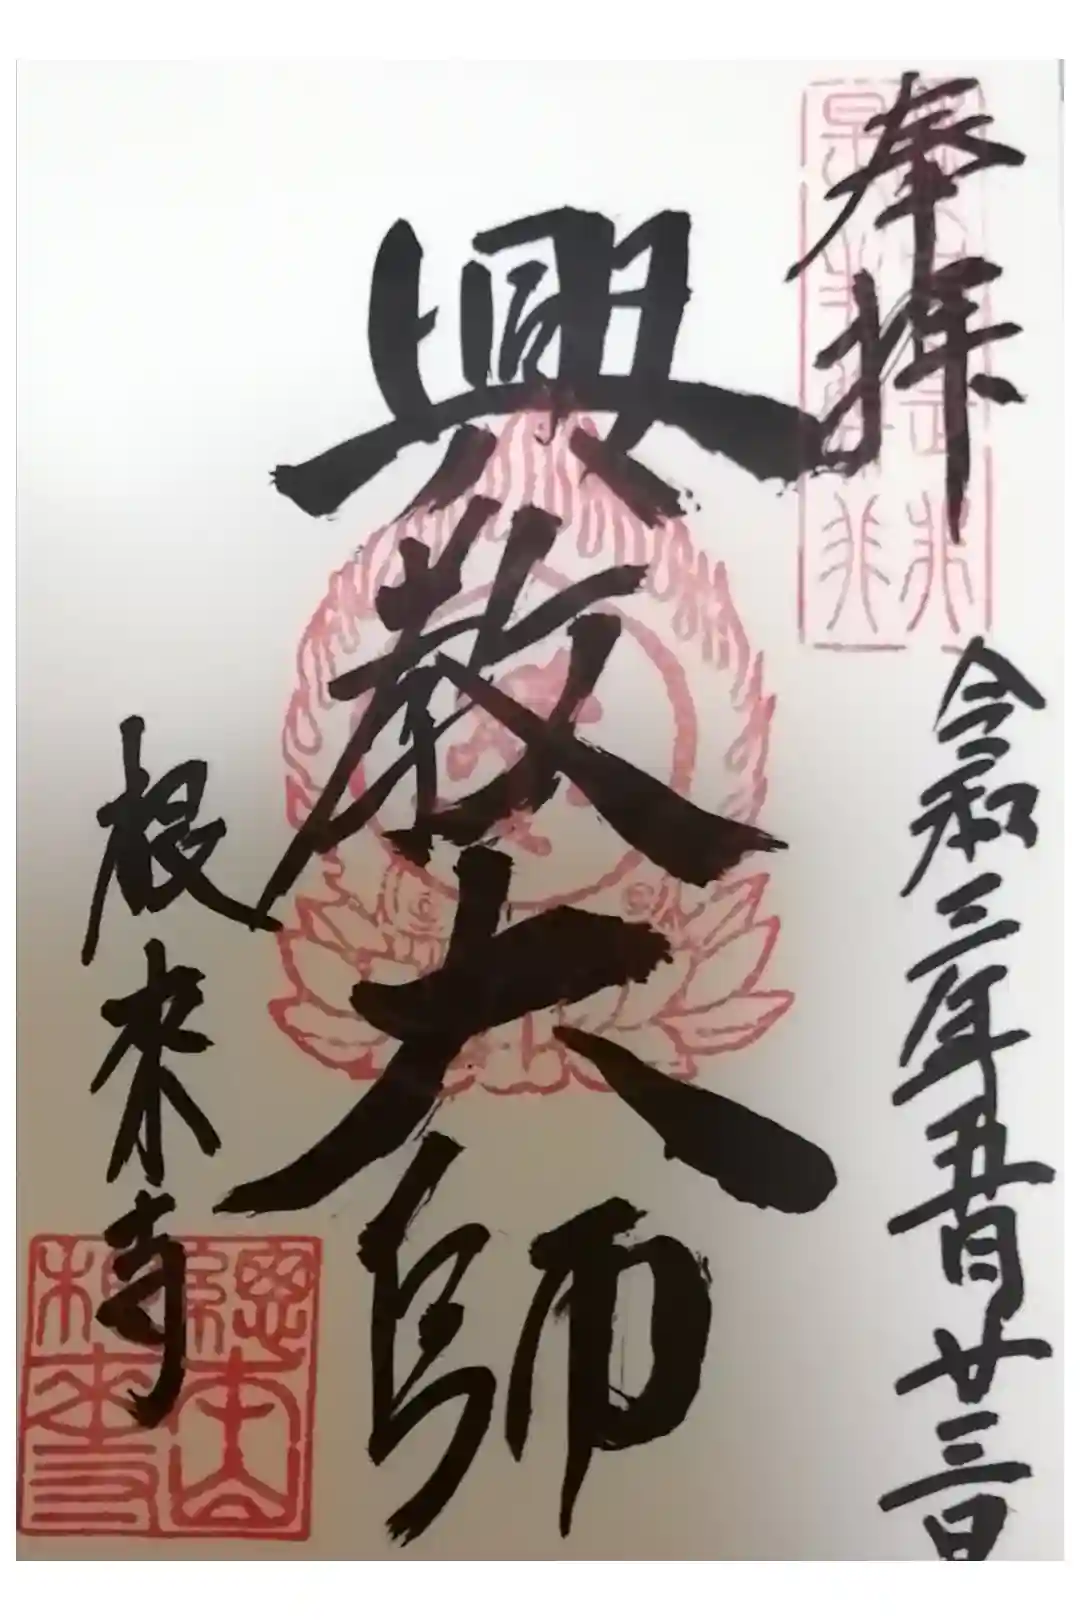 奉拝
令和三年五月廿三日
興教大師
根来寺